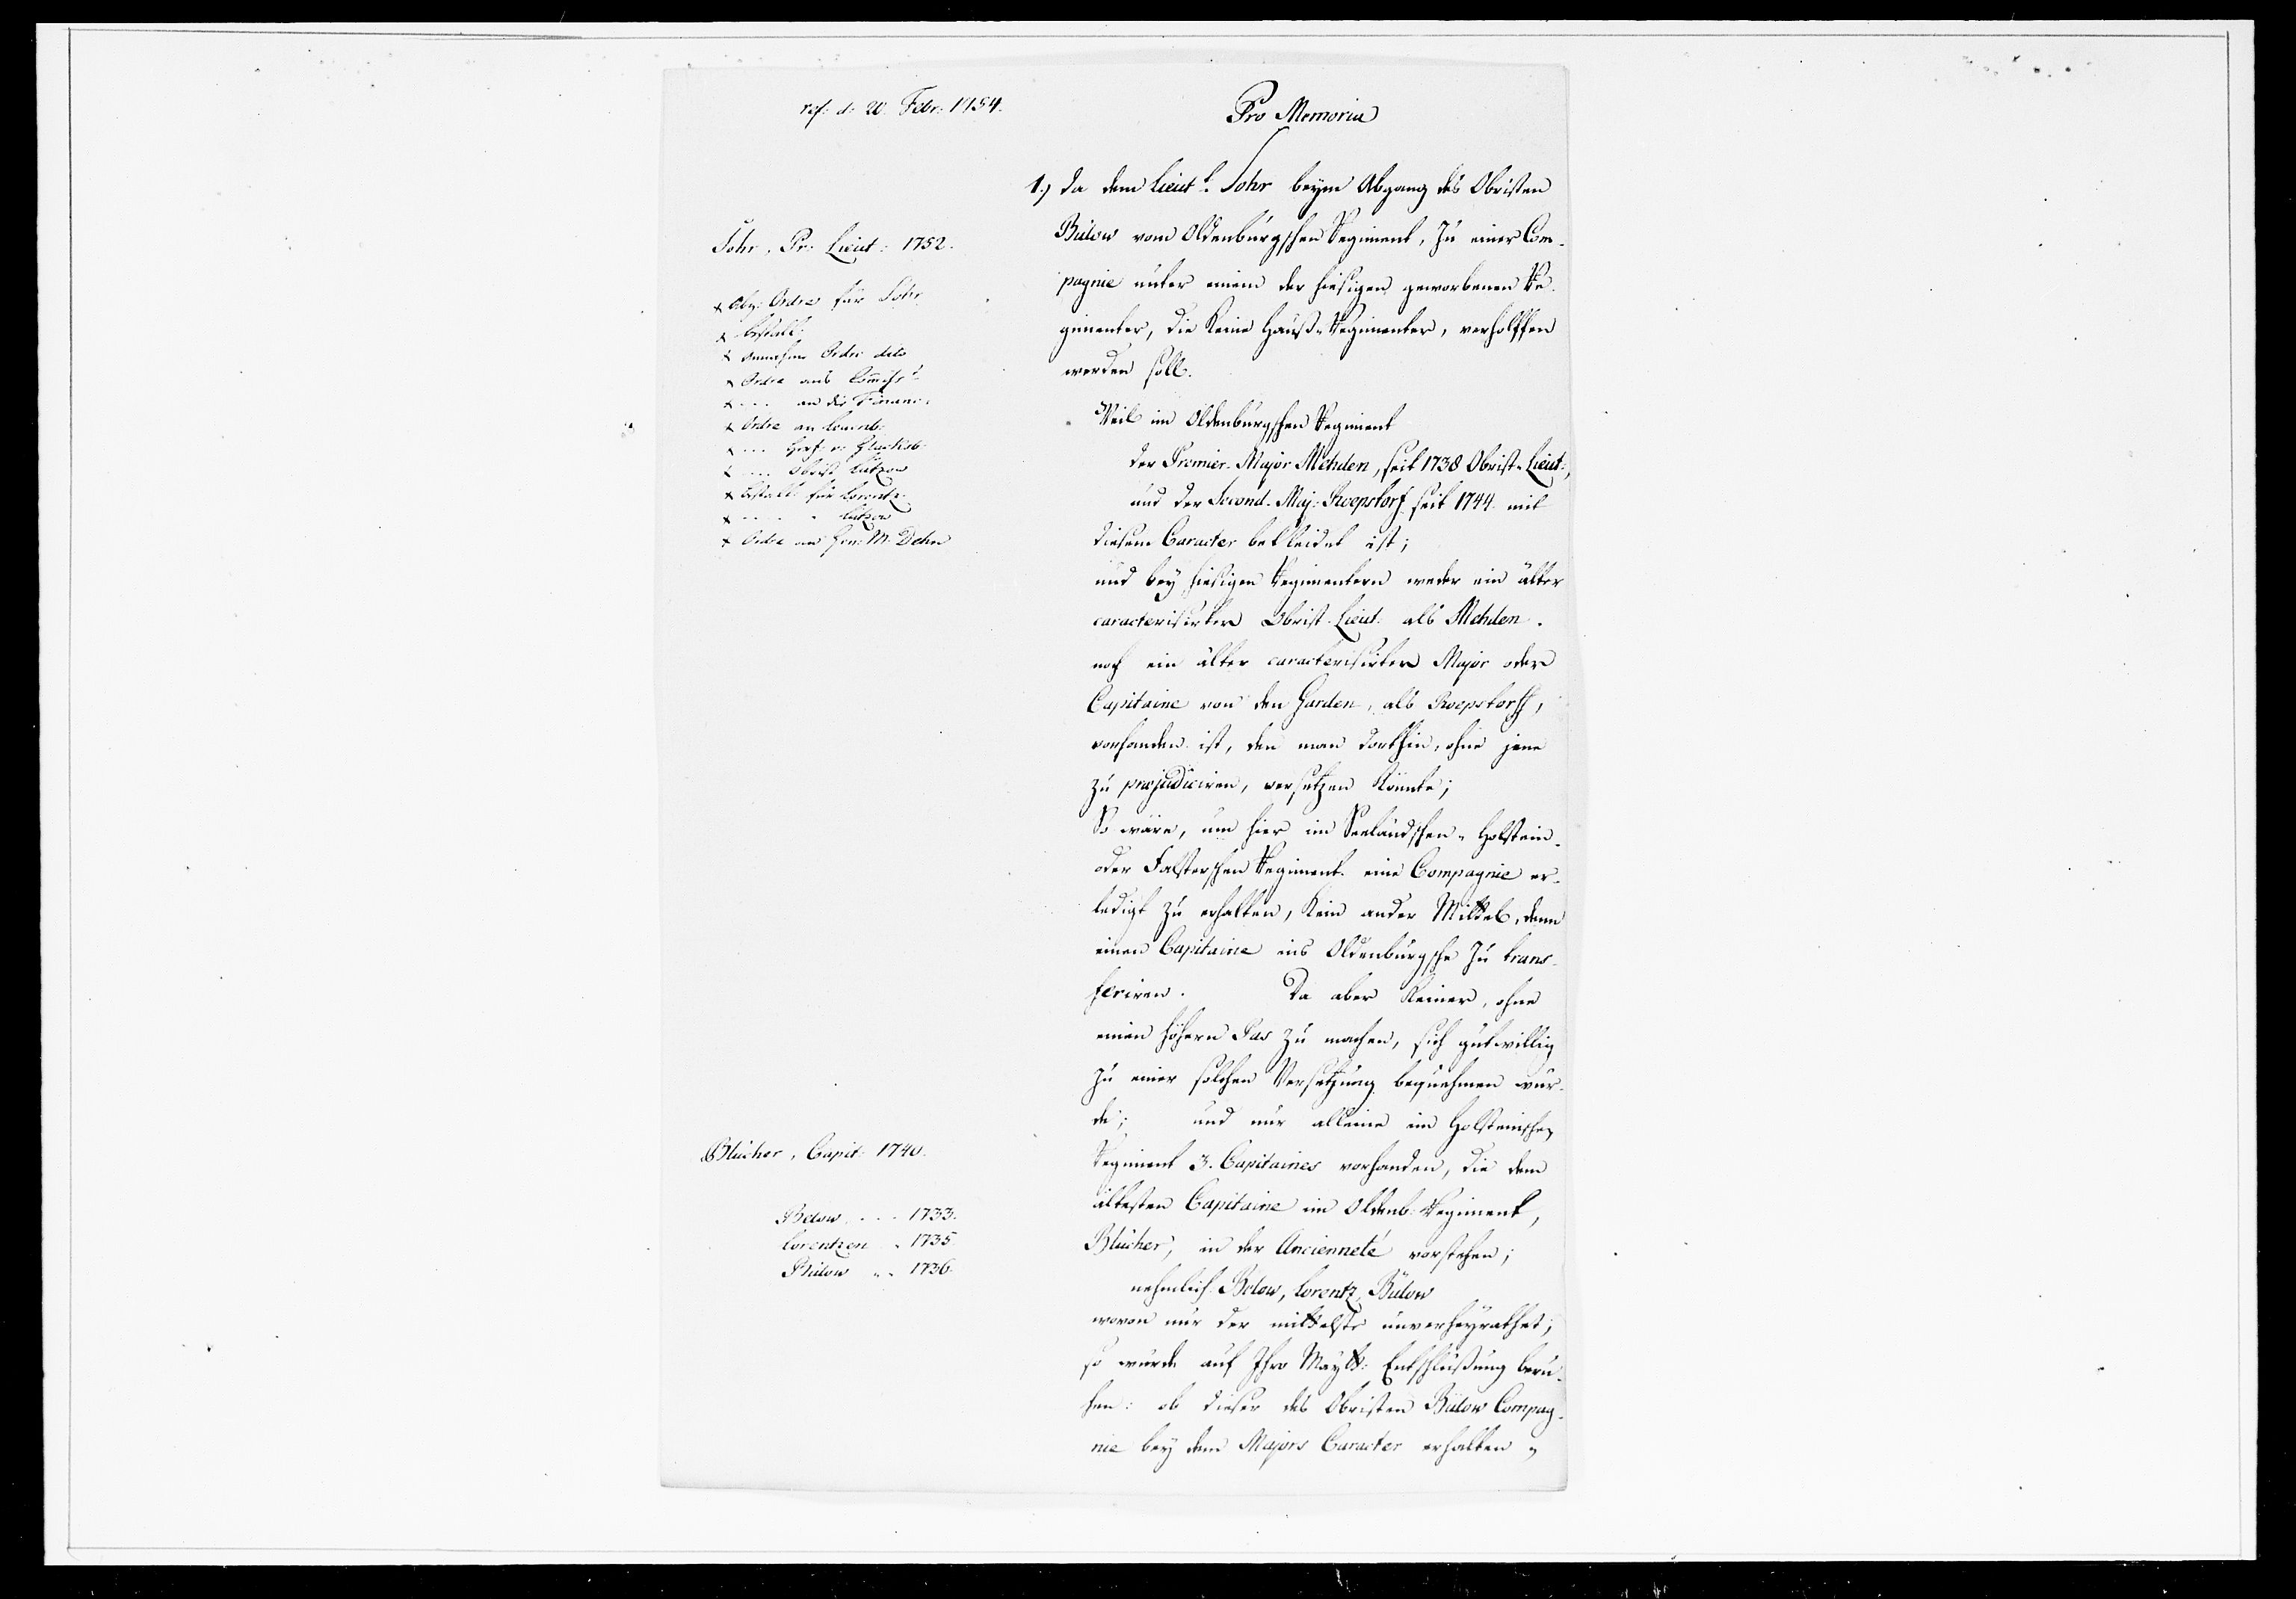 res: d: 20. Febr: 1754.
Pro Memoria
1.) Da dem Lieut. Sohr beym Abgang des Obristen
Bülow vom Oldenburgschen Regiment, zu einer Com-
pagnie unter einem der hiesigen geworbenen Re-
gimenter, die keine Hauß-Regimenter, verholffen
werden soll.
Weil im Oldenburgschen Regiment
der Premier-Major Mehden, seit 1738 Obrist-Lieut:,
und der Second-Maj: Roepstorf seit 1744 mit
diesem Caracter bekleidet ist;
und bey hiesigen Regimentern weder ein älter
caracterisirter Obrist-Lieut. als Mehden.
noch ein älter caracterisirter Major oder
Capitaine von den Garden, als Roepstorff,
vorhanden ist, den man dorthin, ohne jene
zu præjudiciren, versetzen könnte;
So wäre, um hier im Seeländschen- Holstein-
oder Falsterschen Regiment eine Compagnie er-
ledigt zu erhalten, kein ander Mittel, denn
einen Capitaine ins Oldenburgsche zu trans-
feriren. Da aber keiner, ohne
einen höhern Pas zu machen, sich gutwillig
zu einer solchen Versetzung bequehmen wür-
de; und nur alleine im Holsteinschen
Regiment 3. Capitaines vorhanden, die dem
ältesten Capitaine im Oldenb: Regiment,
Blücher, in der Ancienneté vorstehen;
nehmlich Below, Lorentz, Bülow
wovon nur der mittelste unverheyrathet;
so würde auf Ihro Maytt: Entschlüßung beru-
hen: ob dieser des Obristen Bülow Compag-
nie bey dem Majors Caracter erhalten,
Sohr, Pr. Lieut: 1752.
x Abg: Ordre für Sohr
x Bestall:
x Annehm Ordre dito
x Ordre ans Commiss
x ... an die Financ:
x Ordre an
x ... v. Glücksb:
x ... Obrist Lützow
x Bestall: für Lorentz
x ... Lützow
x Ordre an M. Dehn
Blücher, Capit: 1740.
Below ... 1733.
Lorentzen . 1735.
Bülow .. 1736.